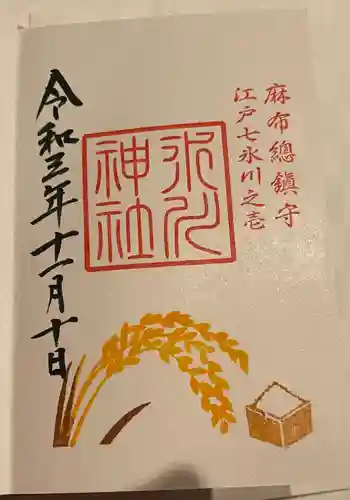 麻布總鎮守
江戸七氷川之壱
氷川
神社
令和三年十一月十日